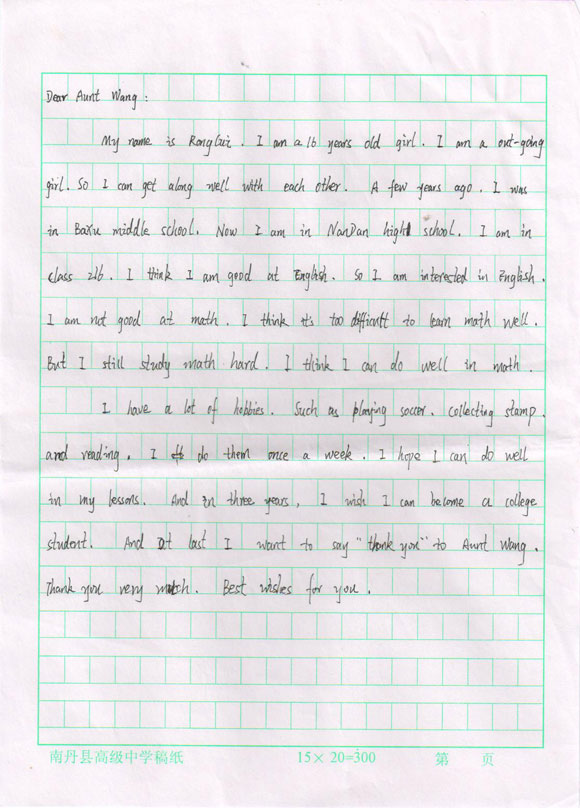 Dear Aunt Wang :
My name is RongCui . I am a 16 years old girl . I am a out-going
girl. So I can get along well with each other . A few years ago . I was
in BaXu middle school. Now I am in NanDan high school. I am in
class 216 . I think I am good at English . So I am interested in English .
I am not good at math . I think it's too difficult to learn math well .
But I still study math hard . I think I can do well in math .
I have a lot of hobbies. Such as playing soccer . collecting stamp .
and reading . I do them once a week . I hope I can do well
in my lessons. And in three years , I wish I can become a college
student. And at last I want to say "thank you" to Aunt Wang .
Thank you very much . Best wishes for you .
南丹县高级中学稿纸 15×20=300 第 页